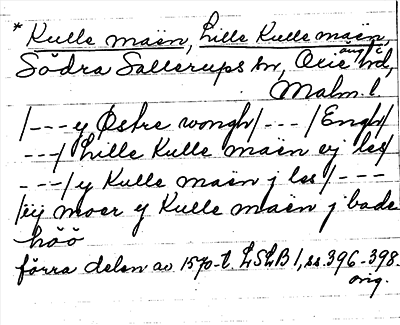 * Kulle maën, Lille Kulle maën,
äng i
Södra Sallerups sn, Oxie hd,
Malm. l.
/--- y Østre wongh/ --- /Engh/
---/ Lille Kulle maën ej les/
---/ y Kulle maën j les/ ---
/ëÿ moer y Kulle maën j bade
höö
förra delen av 1570-t. LSLB 1, ss. 396-398.
orig.